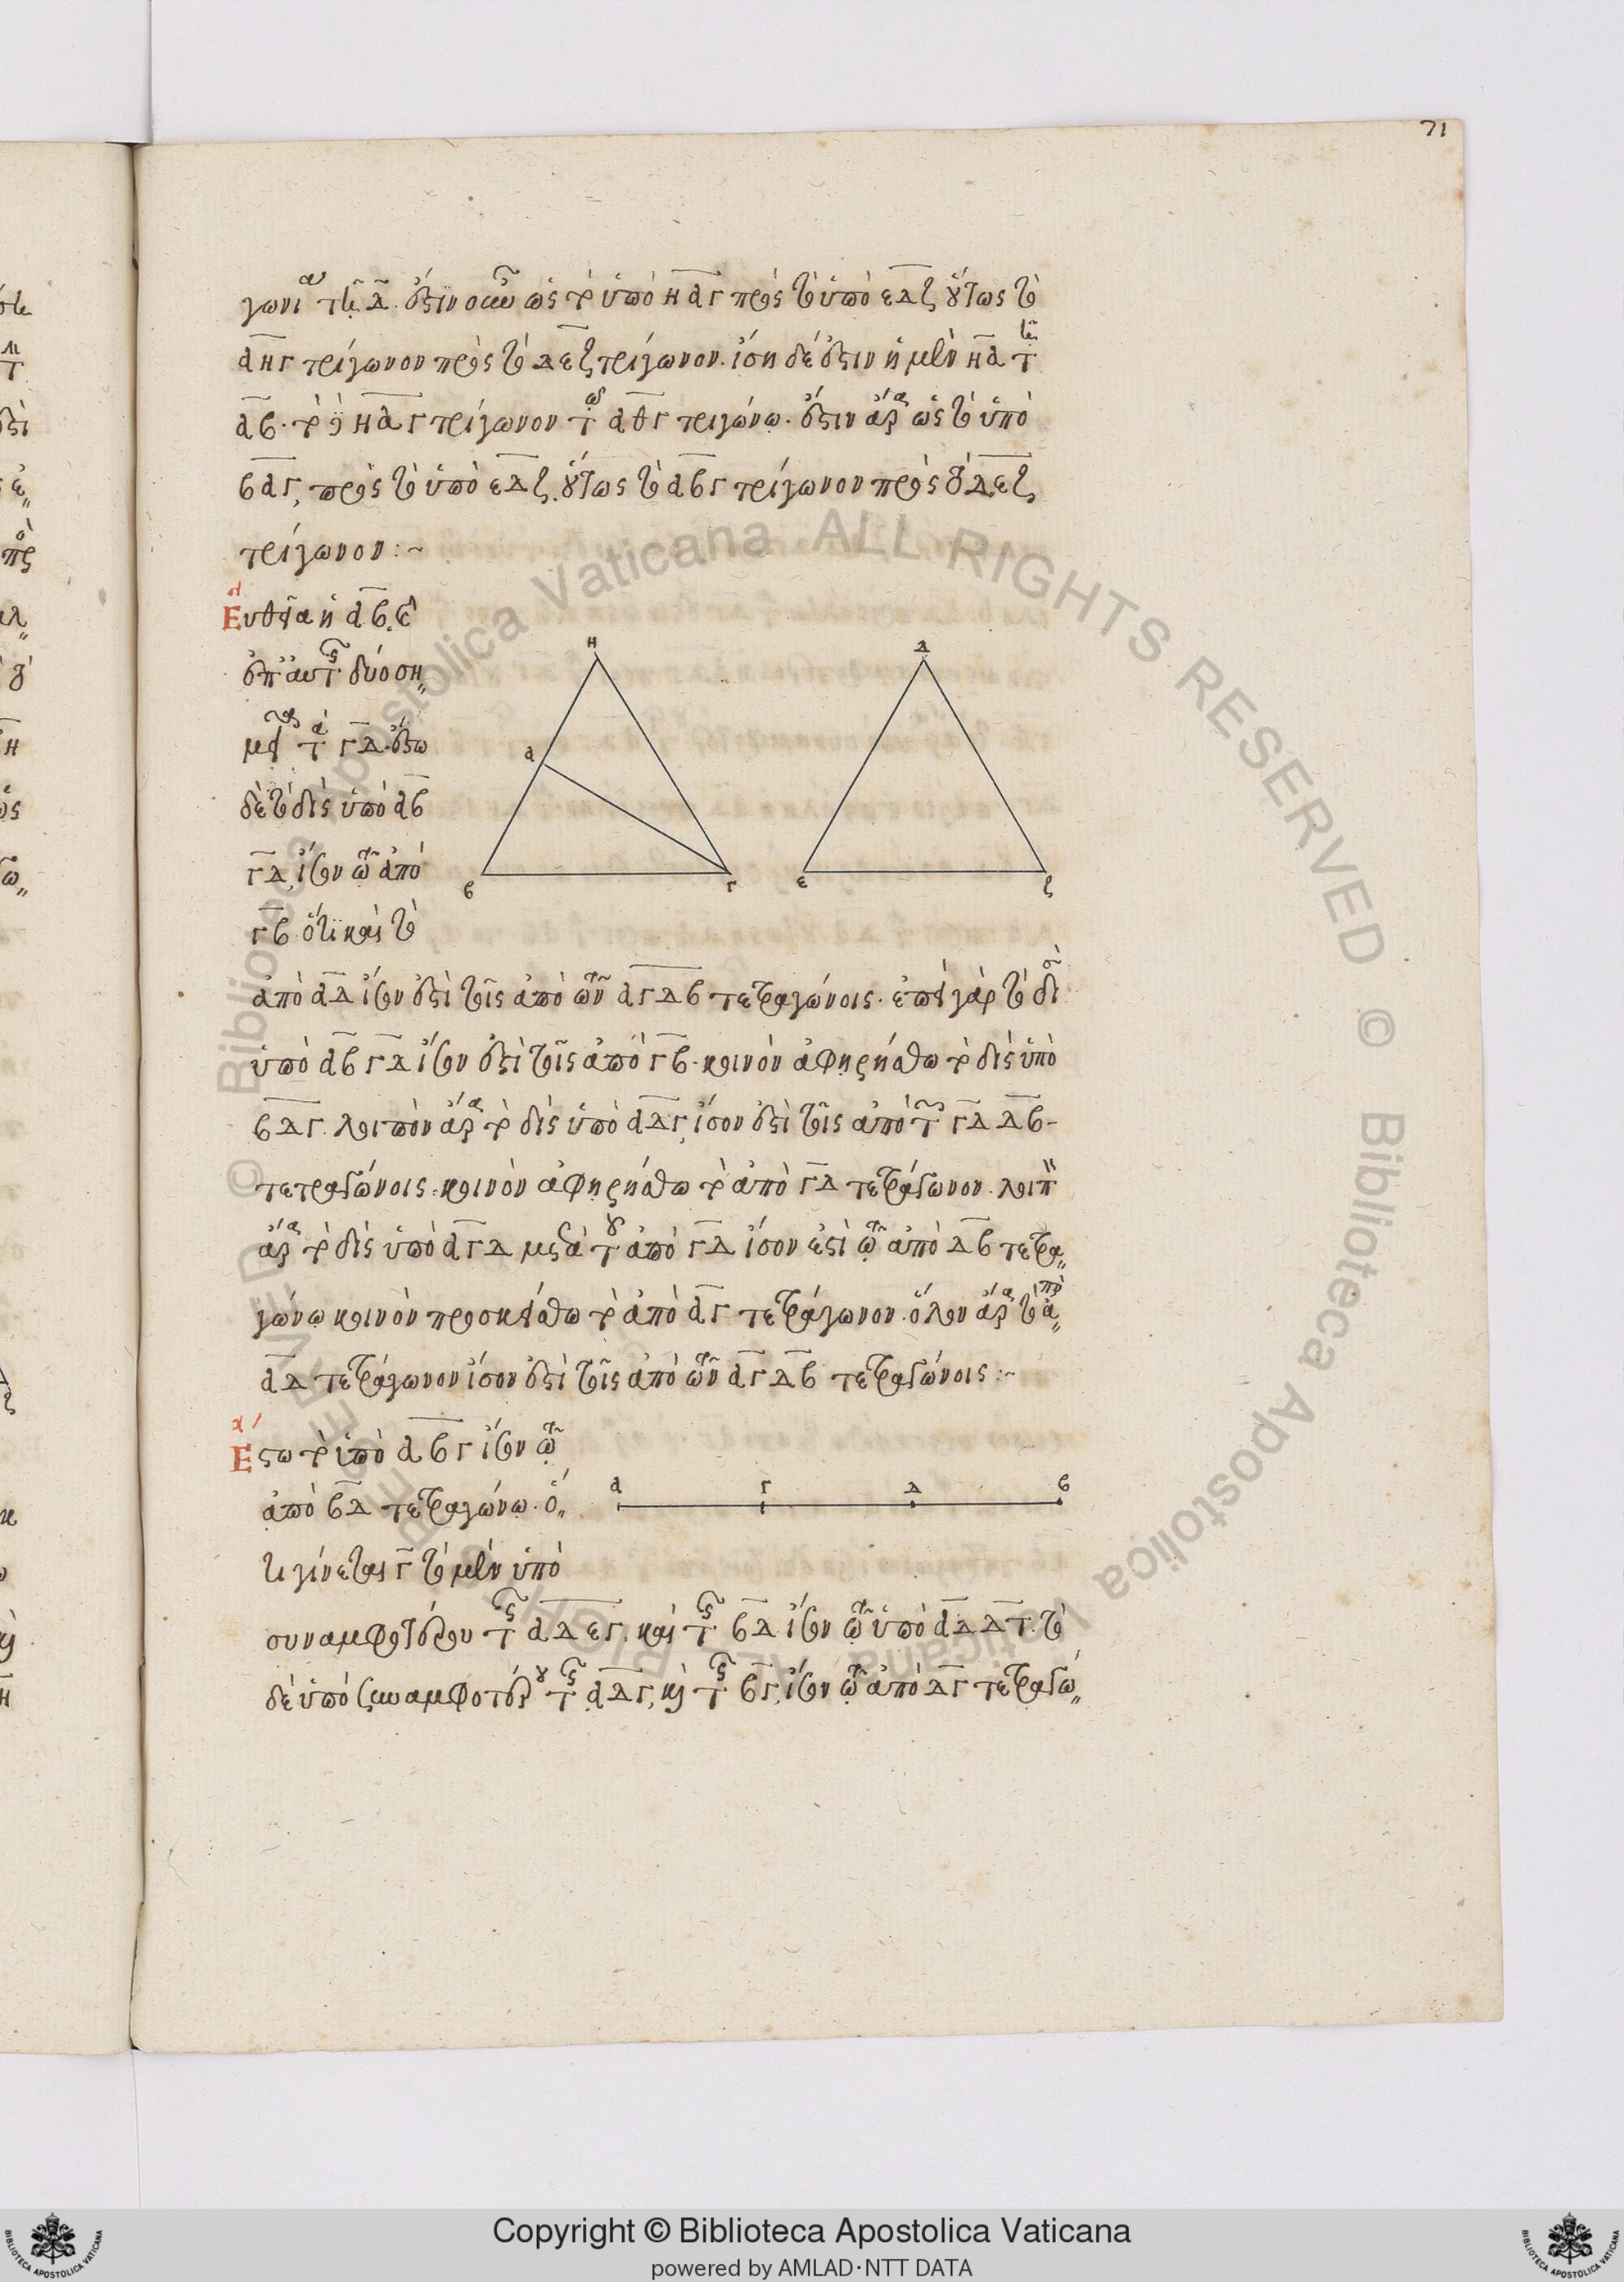 71
γωνίαν τῆ Δ. ἔστιν οὖν ὡς τὸ ὑπὸ ΗΑΓ πρὸς τὸ ὑπὸ ΕΔΖ οὕτως τὸ
ΑΗΓ τρίγωνον πρὸς τὸ ΔΕΖ τρίγωνον. ἴση δέ ἐστιν ἡ μὲν ΗΑ τῆ
ΑΒ. τὸ δὲ ΗΑΓ τρίγωνον τῶ ΑΘΓ τριγώνω. ἔστιν ἄρα ὡς τὸ ὑπὸ
ΒΑΓ, πρὸς τὸ ὑπὸ ΕΔΖ. οὕτως τὸ ΑΒΓ τρίγωνον πρὸς τὸ ΔΕΖ
τρίγωνον :~
Εὐθεῖα ἡ ΑΒ.
ἐπ' αὐτῆς δύο ση„
μεῖα τὰ ΓΔ. ἔστω
δὲ τὸ δὶς ὑπὸ ΑΒ
ΓΔ, ἴσον τῶ ἀπὸ
ΓΒ. ὅτι καὶ τὸ
ἀπὸ ΑΔ ἴσον ἐστὶ τοῖς ἀπὸ τῶν ΑΓ ΔΒ τετραγώνοις. ἐπεὶ γὰρ τὸ δὶς
ὑπὸ ΑΒ ΓΔ ἴσον ἐστὶ τοῖς ἀπὸ ΓΒ. κοινὸν ἀφηρήσθω τὸ δὶς ὑπὸ
ΒΔΓ. λοιπὸν ἄρα τὸ δὶς ὑπὸ ΑΔΓ, ἴσον ἐστὶ τοῖς ἀπὸ τῶν ΓΔ ΔΒ
τετραγώνοις. κοινὸν ἀφηρήσθω τὸ ἀπὸ ΓΔ τετράγωνον. λοιπὸν
ἄρα τὸ δὶς ὑπὸ ΑΓΔ μετὰ τοῦ ἀπὸ ΓΔ ἴσον ἐστὶ τῶ ἀπὸ ΔΒ τετρα„
γώνω κοινὸν προσκείσθω τὸ ἀπὸ ΑΓ τετράγωνον. ὅλον ἄρα τὸ ἀπὸ
ΑΔ τετράγωνον ἴσον ἐστὶ τοῖς ἀπὸ τῶν ΑΓ ΔΒ τετραγώνοις :~
Εστω τὸ ὑπὸ ΑΒΓ ἴσον τῶ
ἀπὸ ΒΔ τετραγώνω. ὅ„
τι γίνεται Γ τὸ μὲν ὑπὸ
συναμφοτέρου τῆς ΑΔ ΕΓ. καὶ τῆς ΒΔ ἴσον τῶ ὑπὸ ΑΔ ΔΓ. τὸ
δὲ ὑπὸ συναμφοτέρου τῆς ΑΔΓ, καὶ τῆς ΒΓ, ἴσον τῶ ἀπὸ ΔΓ τετραγώ„
Η
Α
Β
Γ
Δ
Ε
Ζ
Α Γ Δ Β
© Biblioteca Apostolica Vaticana ALL RIGHTS RESERVED
Copyright © Biblioteca Apostolica Vaticana
powered by AMLAD·NTT DATA
BIBLIOTECA APOSTOLICA VATICANA